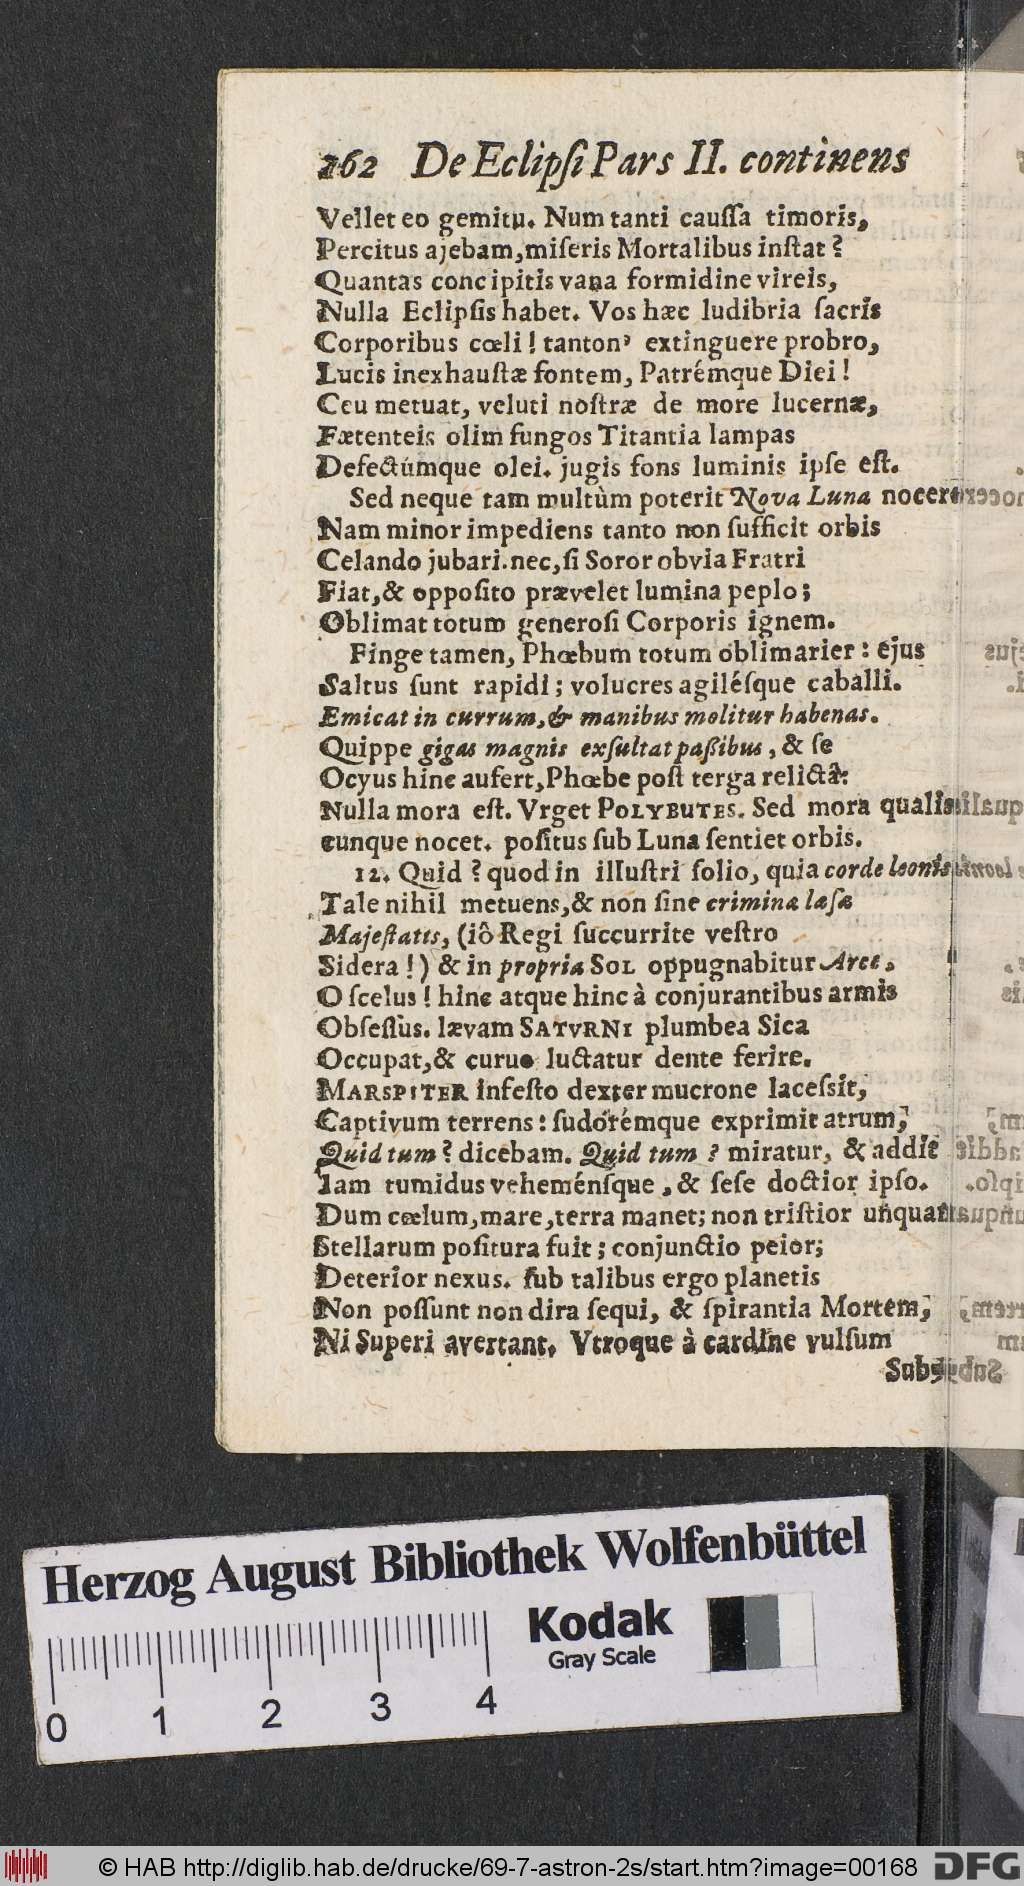 262 De Eclipsi Pars II. continens
Vellet eo gemitu. Num tanti caussa timoris,
Percitus ajebam, miseris Mortalibus instat?
Quantas concipitis vana formidine vireis,
Nulla Eclipsis habet. Vos hæc ludibria sacris
Corporibus cœli! tanton' extinguere probro,
Lucis inexhaustæ fontem, Patrémque Diei!
Ceu metuat, veluti nostræ de more lucernæ,
Fætenteis olim fungos Titantia lampas
Defectúmque olei. jugis fons luminis ipse est.
Sed neque tam multùm poterit Nova Luna nocere
Nam minor impediens tanto non sufficit orbis
Celando jubari. nec, si Soror obvia Fratri
Fiat, & opposito prævelet lumina peplo;
Oblimat totum generosi Corporis ignem.
Finge tamen, Phœbum totum oblimarier: ejus
Saltus sunt rapidi; volucres agilésque caballi.
Emicat in currum, & manibus molitur habenas.
Quippe gigas magnis exsultat paßibus, & se
Ocyus hinc aufert, Phœbe post terga relictâ:
Nulla mora est. Vrget POLYBUTES. Sed mora qualis
cunque nocet. positus sub Luna sentiet orbis.
12. Quid? quod in illustri solio, quia corde leonis
Tale nihil metuens, & non sine crimina læsæ
Majestatis, (iô Regi succurrite vestro
Sidera!) & in propria SOL oppugnabitur Arce.
O scelus! hinc atque hinc à conjurantibus armis
Obsessus. lævam SATVRNI plumbea Sica
Occupat, & curuo luctatur dente ferire.
MARSPITER infesto dexter mucrone lacessit,
Captivum terrens: sudorémque exprimit atrum;
Quid tum? dicebam. Quid tum? miratur, & addit
Iam tumidus veheménsque, & sese doctior ipso.
Dum cœlum, mare, terra manet; non tristior unquam
Stellarum positura fuit; conjunctio peior;
Deterior nexus. sub talibus ergo planetis
Non possunt non dira sequi, & spirantia Mortem;
Ni Superi avertant. Vtroque à cardine vulsum
Herzog August Bibliothek Wolfenbüttel
Kodak
Gray Scale
0 1 2 3 4
© HAB http://diglib.hab.de/drucke/69-7-astron-2s/start.htm?image=00168 DFG